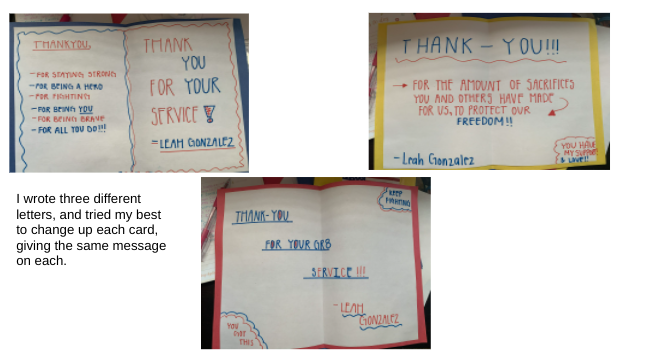 THANKYOU,
- FOR STAYING STRONG
- FOR BEING A HERO
- FOR FIGHTING
- FOR BEING YOU
- FOR BEING BRAVE
- FOR ALL YOU DO!!!
THANK
YOU
FOR YOUR
SERVICE!
- LEAH GONZALEZ
THANK-YOU!!!
→ FOR THE AMOUNT OF SACRIFICES
YOU AND OTHERS HAVE MADE
FOR US, TO PROTECT OUR
FREEDOM!!
- Leah Gonzalez
YOU HAVE
MY SUPPORT
& LOVE!!
I wrote three different
letters, and tried my best
to change up each card,
giving the same message
on each.
KEEP
FIGHTING
THANK-YOU
FOR YOUR
SERVICE !!!
- LEAH
GONZALEZ
YOU
GOT
THIS